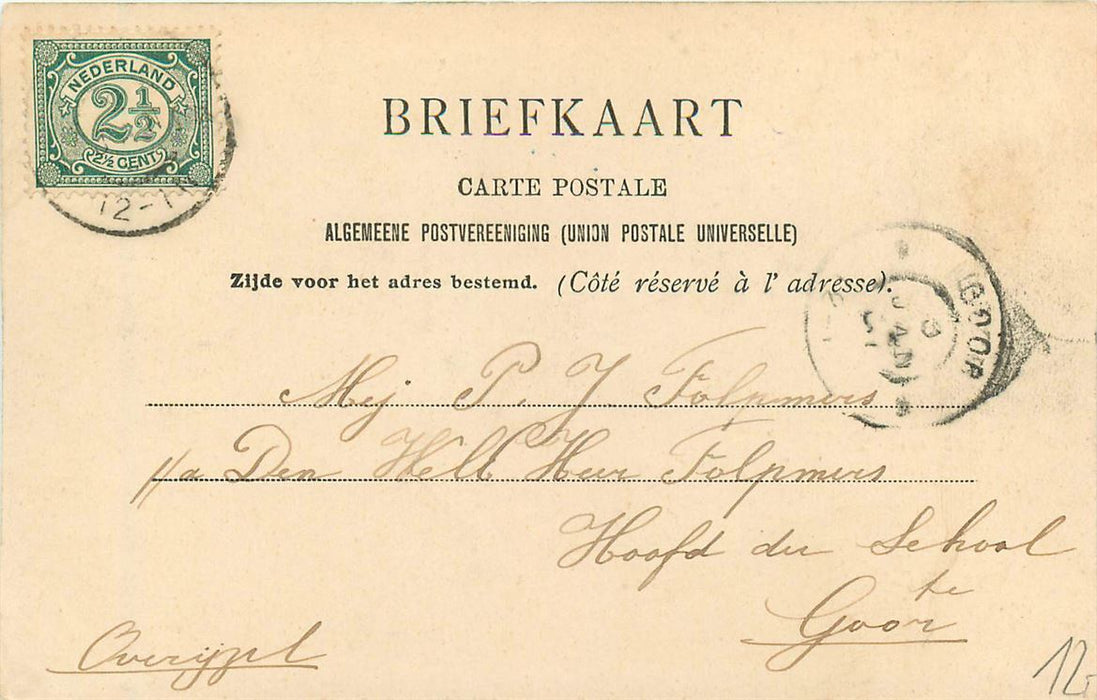 NEDERLAND
2 1/2
2½ CENT
12-1N
BRIEFKAART
CARTE POSTALE
ALGEMEENE POSTVEREENIGING (UNION POSTALE UNIVERSELLE)
Zijde voor het adres bestemd. (Côté réservé à l' adresse).
GOOR
JAN
Mej P. J Folpmers
p/a Den WelE Heer Folpmers
Hoofd der School
te
Goor
Overijpel
12,-